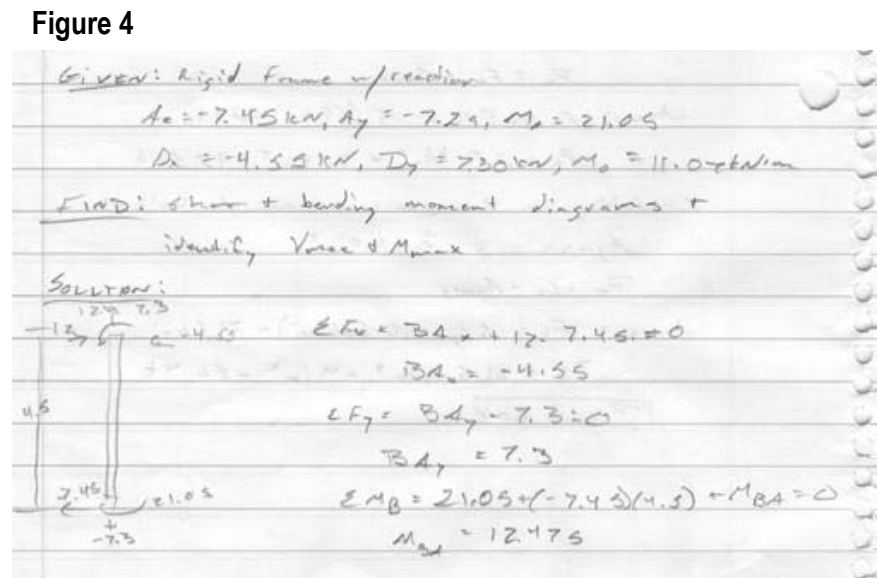 Figure 4
GIVEN: Rigid Frame w/reaction
Ax = -7.45 kN, Ay = -7.29, MA = 21.05
Dx = -4.55 kN, Dy = 7.30 kN, MD = 11.07 kN·m
FIND: Shear + bending moment diagrams +
identify Vmax & Mmax
SOLUTION:
7.3
12 4.55 ΣFx = BAx + 12 - 7.45 = 0
BAx = -4.55
4.5 ΣFy = BAy - 7.3 = 0
BAy = 7.3
7.45 21.05 ΣMB = 21.05 + (-7.45)(4.5) + MBA = 0
-7.3 MBA = 12.475